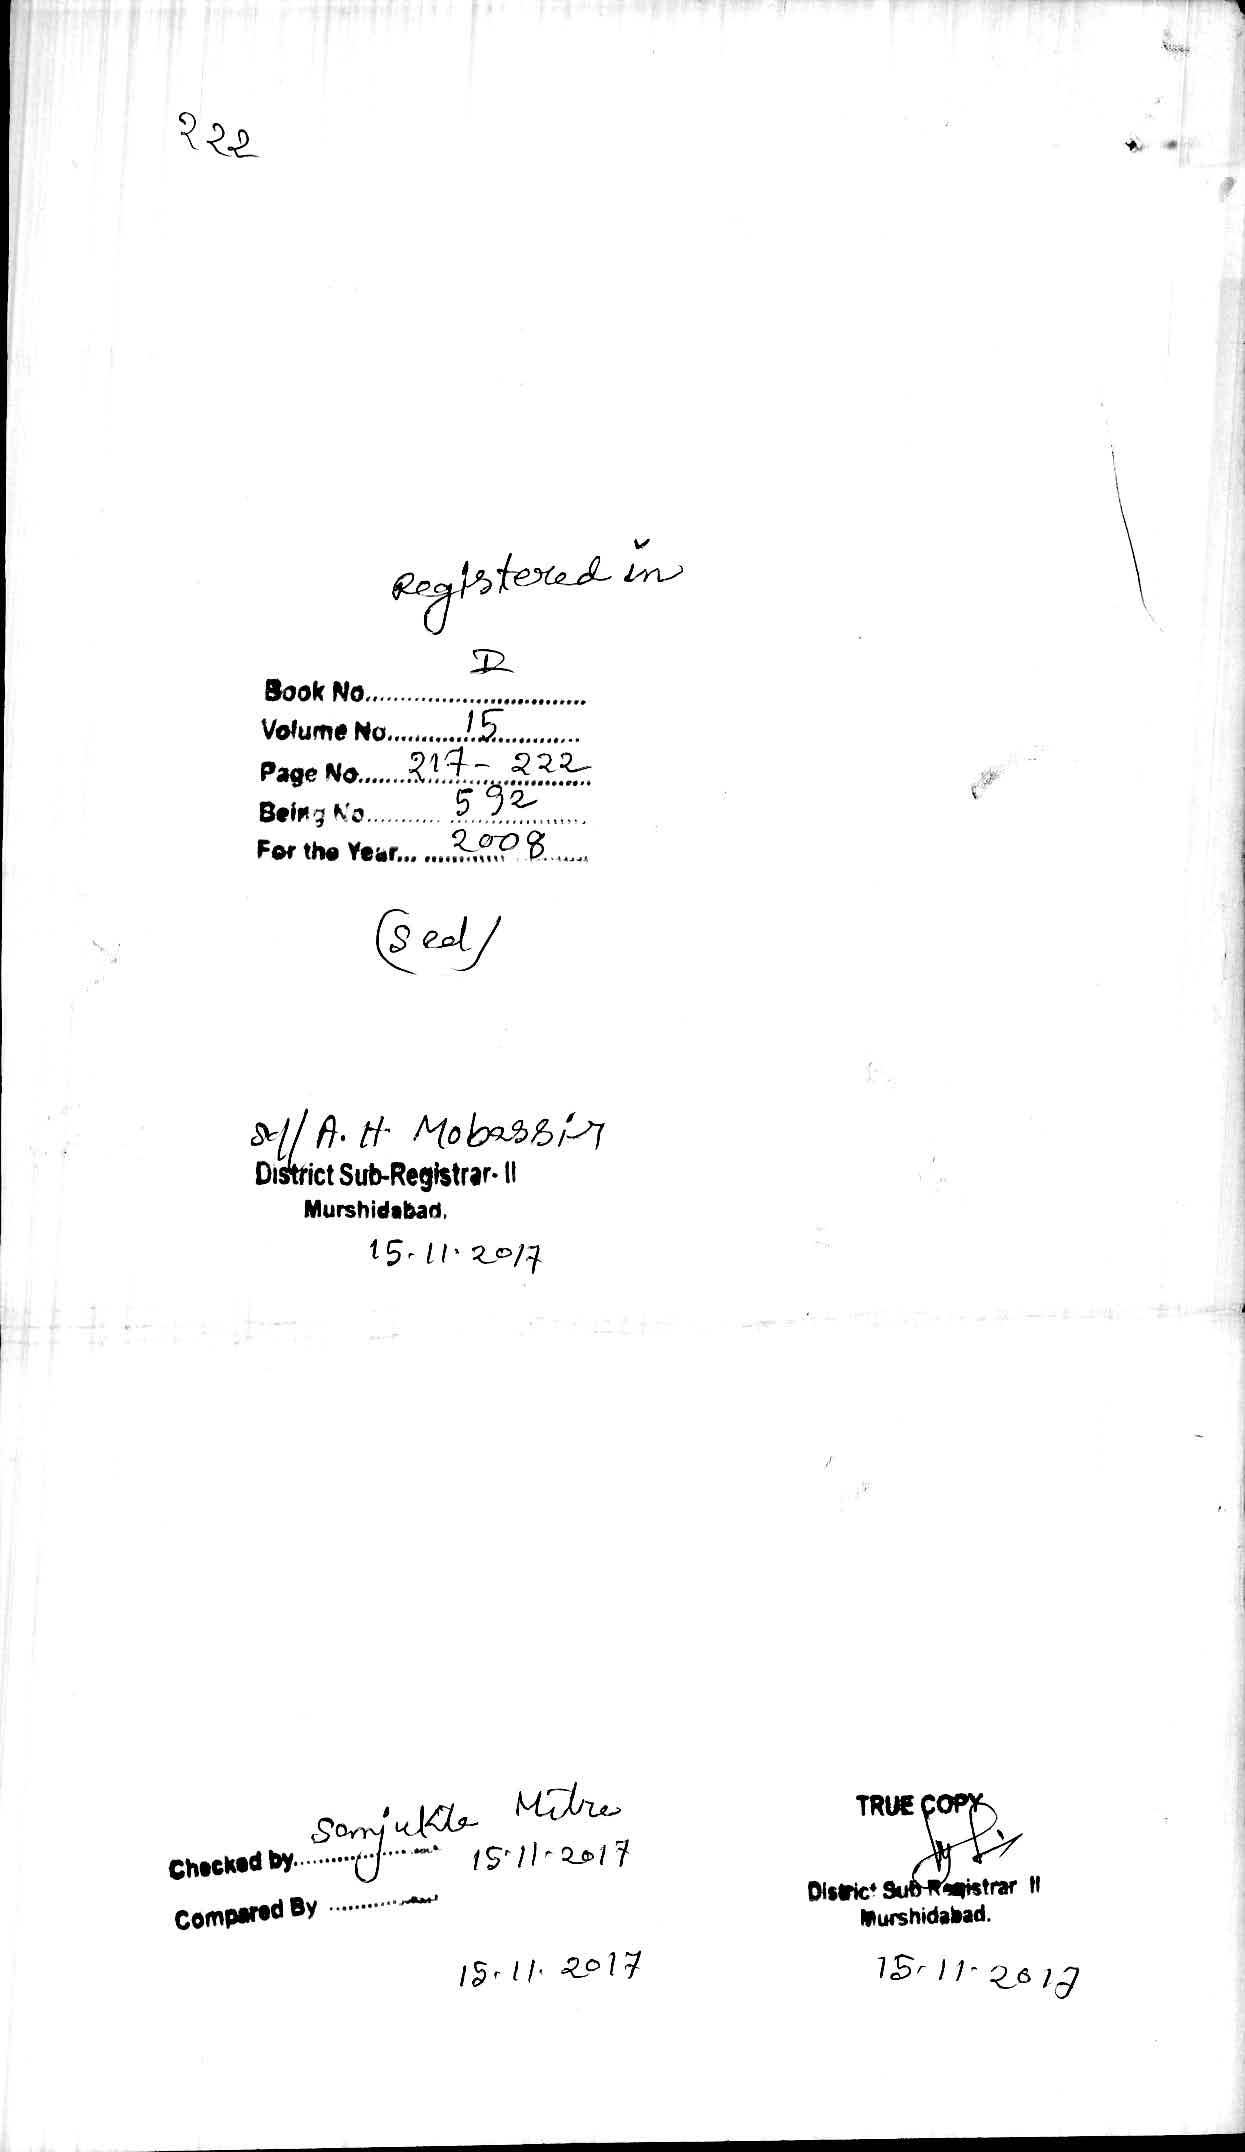 222
Registered in
Book No. I
Volume No. 15
Page No. 217 - 222
Being No. 592
For the Year... 2008
(Seal)
Sd// A. H. Mobassir
District Sub-Registrar- II
Murshidabad.
15.11.2017
Checked by Sanjukta Mitra 15.11.2017
Compared By
15.11.2017
TRUE COPY
District Sub Registrar II
Murshidabad.
15.11.2017